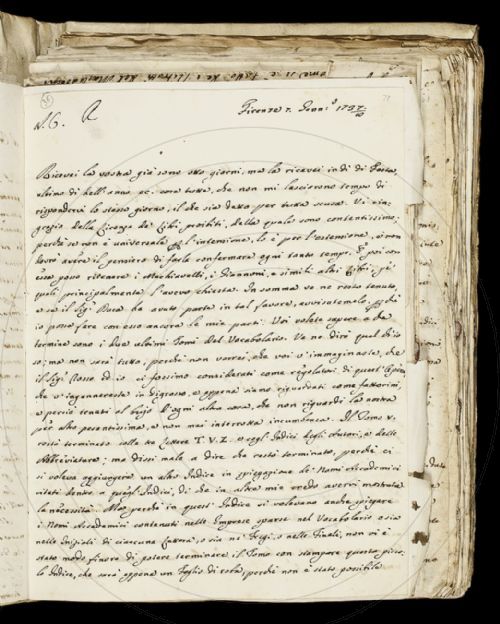 N. 6. R
Firenze 7. Genn.º 1737/
Ricevei la vostra già sono otto giorni, ma la ricevei in dì di Festa,
ultimo dell'anno ec. cose tutte, che non mi lasciorono tempo di
rispondervi lo stesso giorno, il che sia detto per tutta scusa. Vi rin-
grazio della Licenza de Libri proibiti, della quale sono contentissimo;
perchè se non è universale l'intenzione, lo è per l'estensione, e non
dovrò avere il pensiero di farla confermare ogni tanto tempo.
posso ritenere i Machiavelli, i Giannoni, e simili altri Libri, pe'
quali principalmente l'avevo chiesta. In somma ve ne resto tenuto,
e se il Sig. ha avuto parte in tal favore, avvisatemelo, perchè
io possa fare con esso ancora le mie parti. Voi volete sapere a che
termine sono i due ultimi Tomi del Vocabolario. Ve ne dirò quel ch'io
so; ma non sarà tutto, perchè non vorrei, che voi v'immaginaste, che
il Sig. Rosso ed io ci fossimo considerati come regolatori di quest'Opera
che v'ingannereste in digrosso, e appena siamo riguardati come fattorini,
e perciò tenuti al bujo d'ogni altra cosa, che non riguardi la nostra
per altro pesantissima, e non mai interrotta incumbenza. Il Tomo V.
restò terminato colle tre Lettere T. V. Z. e cogl'Indici degli Autori, e delle
Abbreviature; ma dissi male a dire che restò terminato, perchè ci
si voleva aggiungere un altro Indice in spiegazione de' Nomi Accademici
citati dentro a quegl'Indici, di che in altra mia credo avervi mostrata
la necessità. Mas perchè in quest'Indice si volevano anche spiegare
i Nomi Accademici contenuti nelle Imprese sparse nel Vocabolario o sia
nelle Iniziali di ciascuna Lettera, o sia ne' Fregi, o nelle Finali, non vi è
stato modo finora di potere terminare il Tomo con stampare questo picco-
lo Indice, che sarà appena un Foglio di roba, perchè non è stato possibile